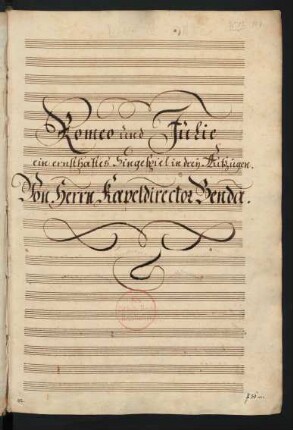 Romeo und Julie
ein ernsthaftes Singspiel in dreÿ Aufzügen.
Von Herrn Kapeldirector Benda.